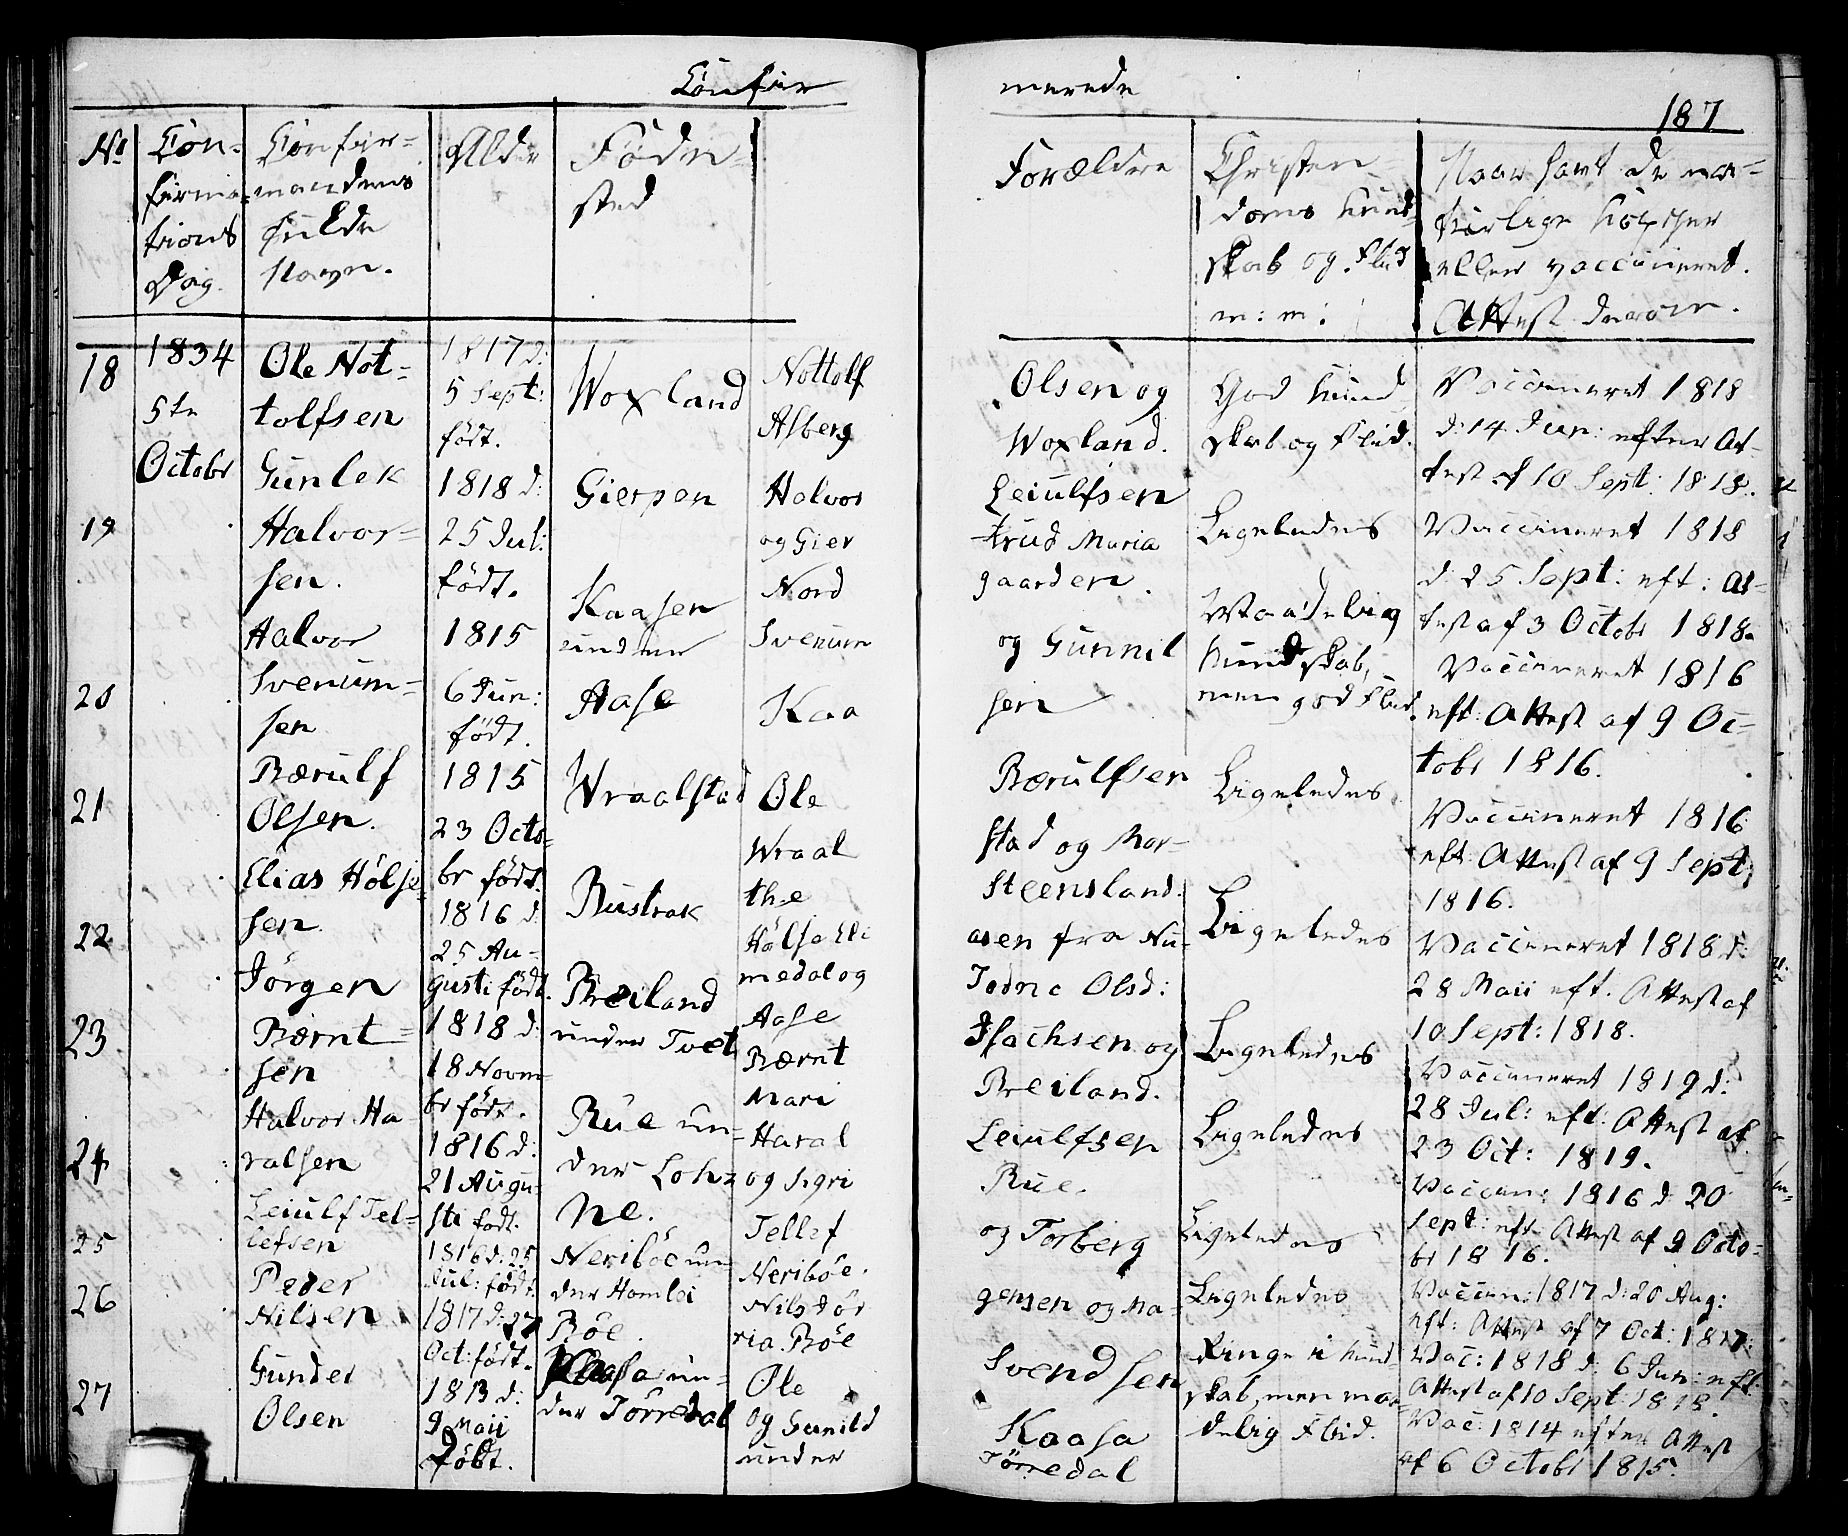 Confir
merede
187
No
Con-
firma-
tions
Dag.
Confir-
mandens
fulde
Navn.
Alder
Føde-
sted
Forældre
Christen-
doms kund-
skab og Flid
m: m:
Naar havt de na-
turlige Kopper
eller vaccineret.
Attest derom.
18
1834
5te
Octobr
Ole Not-
tolfsen
1817 d:
5 Sept:
født.
Woxland
Nottolf
Asberg
Olsen og
Woxland.
God kund
skab og Flid.
Vaccineret 1818
d: 14 Jun: efter At-
test af 10 Sept: 1818.
19
Gunlek
Halvor-
sen.
1818 d:
25 Jul:
født.
Gierpen
Halvor
og Gier
Nord
Leiulfsen
trud Maria
gaarden.
Ligeledes
Vaccineret 1818
d: 25 Sept: eft: At-
test af 3 Octobr 1818.
20
Halvor
Svenum-
sen
1815
6 Jun:
født.
Kaasen
under
Aase
Svenum
Kaa
og Gunnil
sen
Maadelig
kundskab,
men god Flid.
Vaccineret 1816
eft: Attest af 9 Oc-
tobr 1816.
21
Bærulf
Olsen.
1815
23 Octo-
br født.
Wraalstad
Ole
Wraal
the
Bærulfsen
stad og Mar-
Steensland.
Ligeledes
Vaccineret 1816
eft: Attest af 9 Sept:
1816.
22
Elias Hølje
sen.
1816 d
25 Au-
gusti født.
Rustrak
Hølje Eli
medal og
Aase
asen fra Nu-
Jodne Olsd:
Ligeledes
Vaccineret 1818 d:
28 Maii eft. Attest af
10 Sept: 1818.
23
Jørgen
Bærnt-
sen
1818 d:
18 Novm-
br født.
Breiland
under Tvet
Bærnt
Mari
Isachsen og
Breiland.
Ligeledes
Vaccineret 1819 d:
28 Jul: eft: Attest af
23 Oct: 1819.
24
Halvor Ha
ralsen
1816 d:
21 Augu-
sti født.
Rue un-
der Loh-
ne.
Haral
og Sigri
Leiulfsen
Rue.
Ligeledes
Vaccin: 1816 d: 20
Sept: eft Attest af 9 Octo-
br 1816.
25
Leiulf Tel-
lefsen
1816 d: 25
Jul: født.
Neribøe un-
der Homlei
Tellef
Neribøe.
og Torberg
Ligeledes
Vaccin: 1817 d: 20 Aug:
eft: Attest af 7 Oct: 1817:
26
Peder
Nilsen
1817 d: 27
Oct: født.
Bøe.
Nils Jør
ria Bøe
gensen og Ma-
Ligeledes
Vac: 1818 d: 6 Jun: eft:
Attest af 10 Sept: 1818.
27
Gunder
Olsen
1813 d:
9 Maii
født.
Kaasa un-
der Tørredal
Ole
og Gunild
under
Svendsen
Kaasa
Tørredal
Ringe i kund
skab, men maa-
delig Flid.
Vac: 1814 efter Attest
af 6 Octobr 1815.